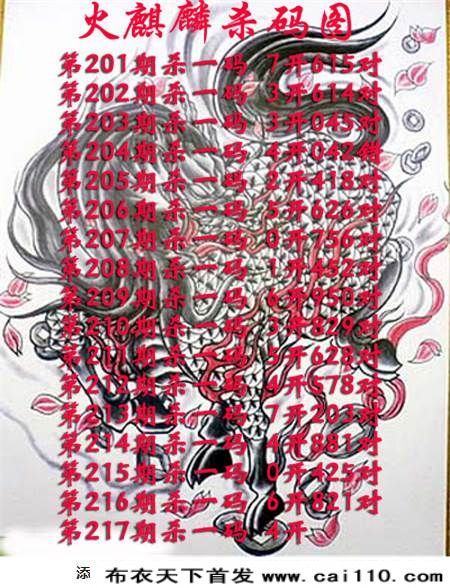 火麒麟杀码图
第201期杀一码 7开615对
第202期杀一码 3开614对
第203期杀一码 3开045对
第204期杀一码 4开042错
第205期杀一码 2开418对
第206期杀一码 5开626对
第207期杀一码 0开756对
第208期杀一码 1开452对
第209期杀一码 6开950对
第210期杀一码 3开829对
第211期杀一码 5开628对
第212期杀一码 4开578对
第213期杀一码 7开203对
第214期杀一码 4开881对
第215期杀一码 0开425对
第216期杀一码 6开821对
第217期杀一码 4开
添 布衣天下首发 www.cai110.com